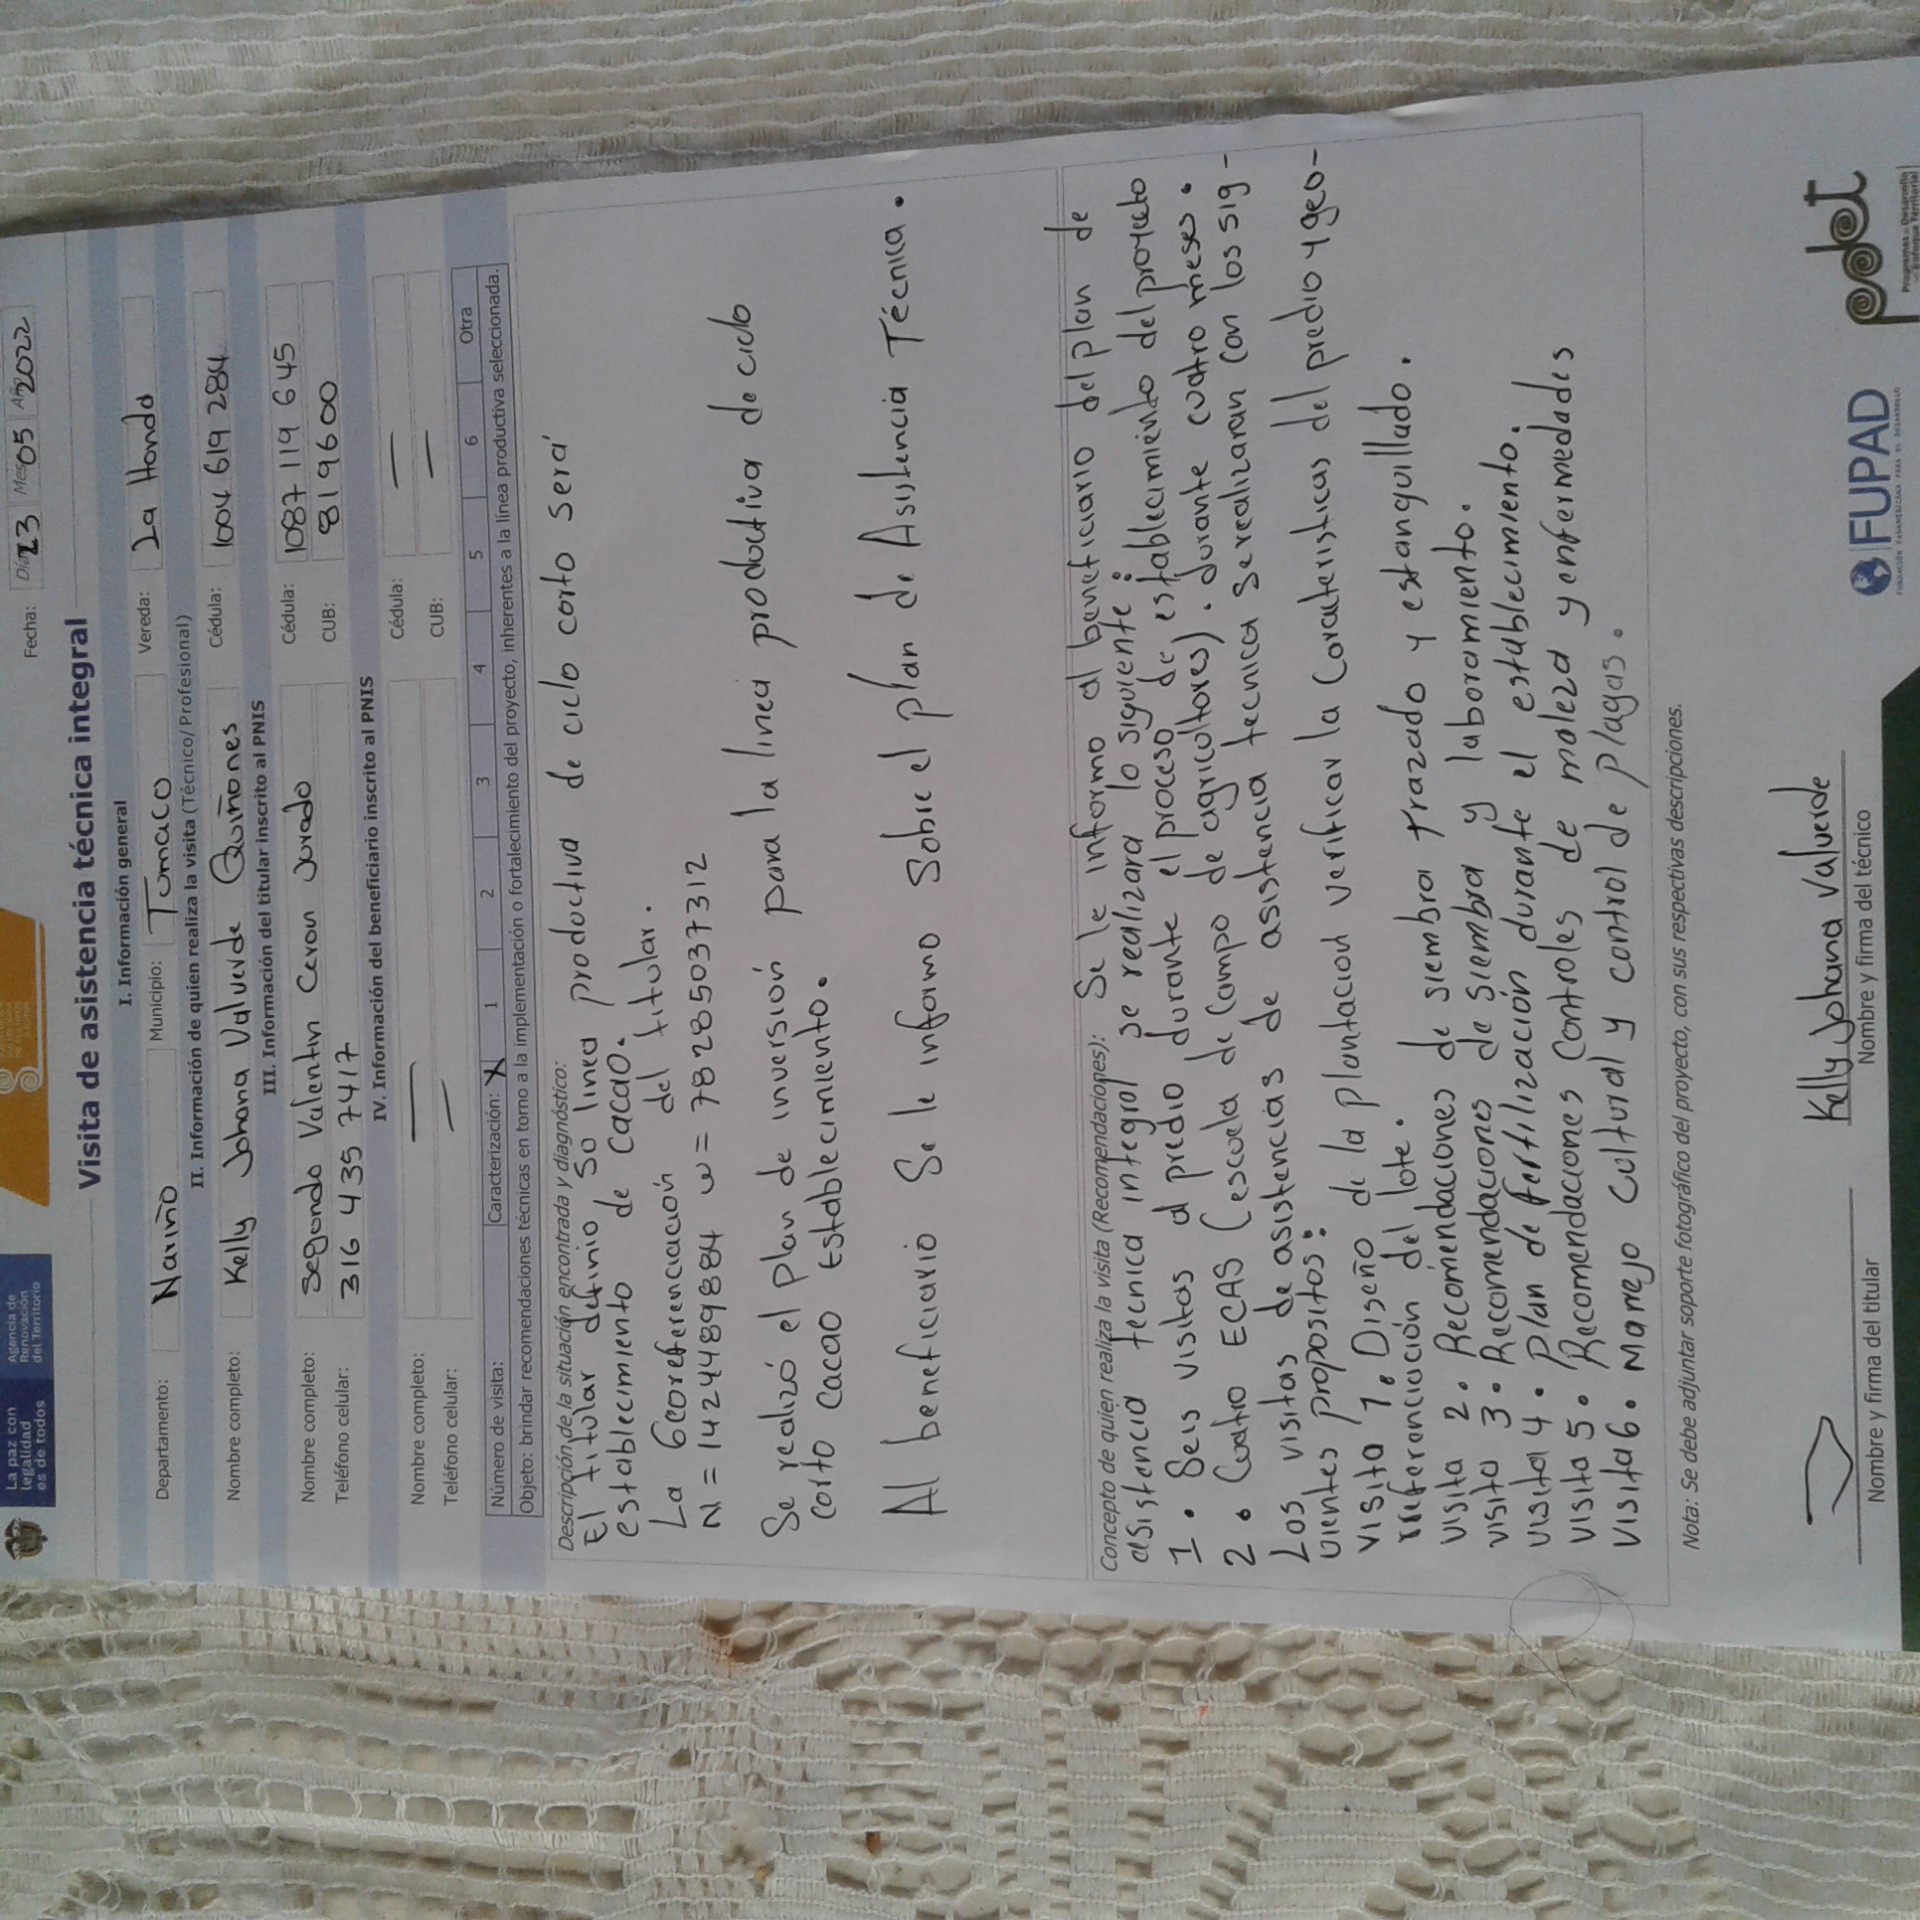 La paz con
legalidad
es de todos
Agencia de
Renovación
del Territorio
Fecha: Día 23 Mes 05 Año 2022
Visita de asistencia técnica integral
I. Información general
Departamento: Nariño Municipio: Tumaco Vereda: La Honda
II. Información de quien realiza la visita (Técnico/Profesional)
Nombre completo: Kelly Johana Valverde Quiñones Cédula: 1004 619 284
III. Información del titular inscrito al PNIS
Nombre completo: Segundo Valentin Ceron Jurado Cédula: 1087 119 645
Teléfono celular: 316 435 7417 CUB: 819600
IV. Información del beneficiario inscrito al PNIS
Nombre completo: — Cédula: —
Teléfono celular: — CUB: —
Número de visita: Caracterización: X 1 2 3 4 5 6 Otra
Objeto: brindar recomendaciones técnicas en torno a la implementación o fortalecimiento del proyecto, inherentes a la línea productiva seleccionada.
Descripción de la situación encontrada y diagnóstico:
El titular definio su linea productiva de ciclo corto será
establecimiento de cacao.
La Georeferenciación del titular.
N = 1424489884 w = 78285037312
Se realizó el plan de inversión para la linea productiva de ciclo
corto cacao establecimiento.
Al beneficiario Se le informo Sobre el plan de Asistencia Técnica.
Concepto de quien realiza la visita (Recomendaciones): Se le informo al beneficiario del plan de
asistencia tecnica integral se realizara lo siguiente:
1. Seis visitas al predio durante el proceso de establecimiento del proyecto
2. Cuatro ECAS (escuela de campo de agricultores). durante cuatro meses.
Los visitas de asistencias de asistencia tecnica se realizaran con los sig-
uientes propositos:
visita 1. Diseño de la plantacion verificar la Caracteristicas del predio y geo-
referenciación del lote.
visita 2. Recomendaciones de siembra trazado y estanquillado.
visita 3. Recomendaciones de siembra y laboramiento.
visita 4. Plan de fertilización durante el establecimiento.
visita 5. Recomendaciones Controles de maleza y enfermedades
visita 6. Manejo cultural y control de plagas.
Nota: Se debe adjuntar soporte fotográfico del proyecto, con sus respectivas descripciones.
Kelly Johana Valverde
Nombre y firma del titular Nombre y firma del técnico
FUPAD
FUNDACIÓN PANAMERICANA PARA EL DESARROLLO
pdet
Programas de Desarrollo
con Enfoque Territorial